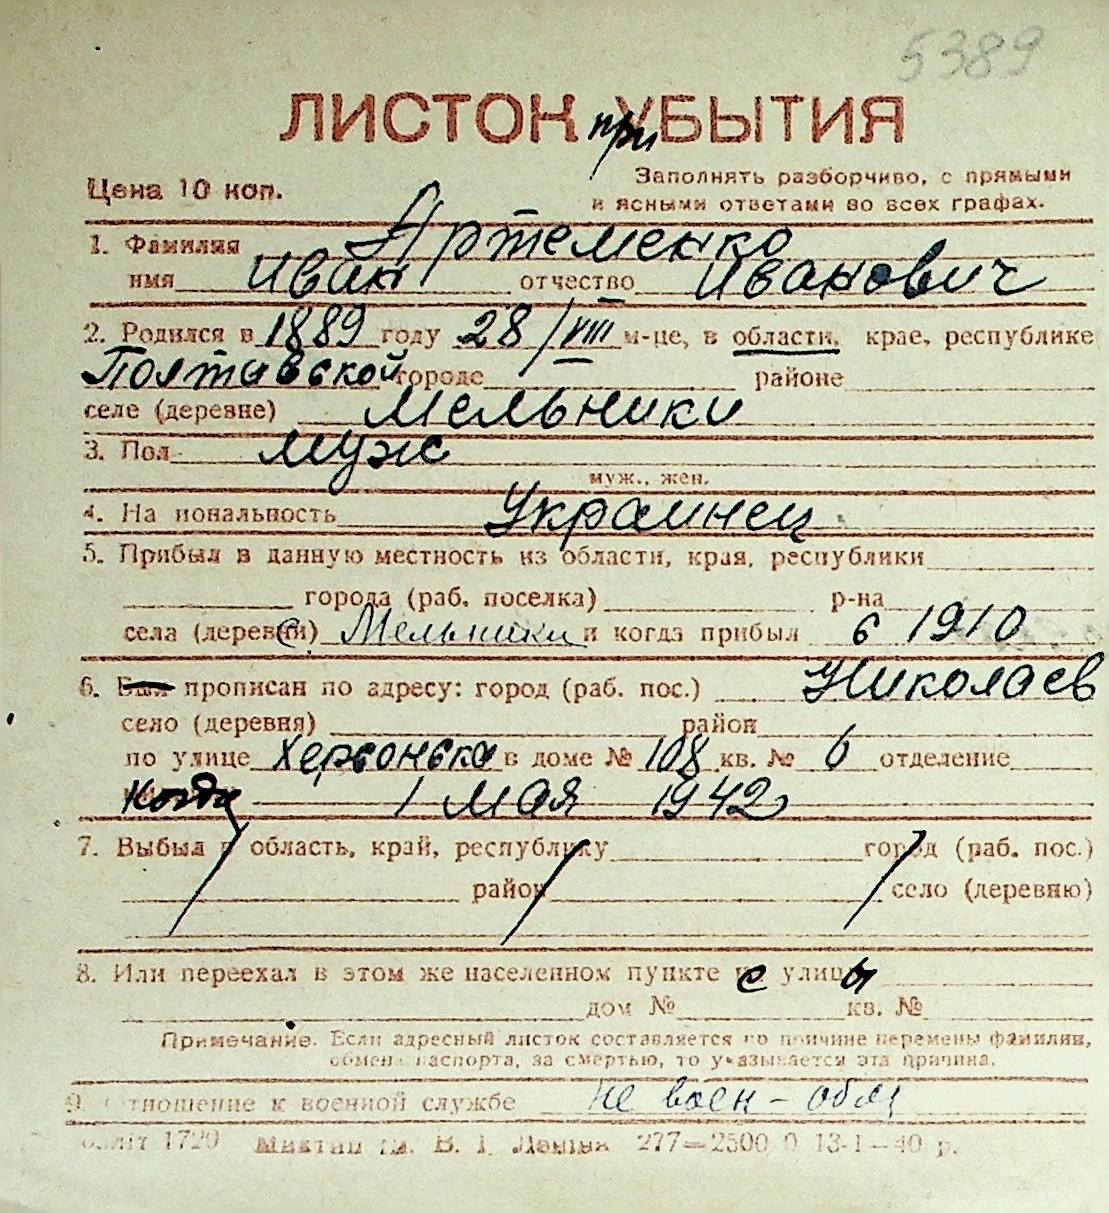 5389
ЛИСТОК при УБЫТИЯ
Цена 10 коп.
Заполнять разборчиво, с прямыми
и ясными ответами во всех графах.
1. Фамилия Артеменко
имя Иван отчество Иванович
2. Родился в 1889 году 28/VIII м-це, в области, крае, республике
Полтавской городе районе
селе (деревне) Мельники
3. Пол муж
муж., жен.
4. На иональность Украинец
5. Прибыл в данную местность из области, края, республики
города (раб. поселка) р-на
села (деревни) с. Мельники и когда прибыл в 1910
6. Был прописан по адресу: город (раб. пос.) Николаев
село (деревня) район
по улице Херсонска в доме № 108 кв. № 6 отделение
Когда 1 мая 1942
7. Выбыл в область, край, республику город (раб. пос.)
район село (деревню)
8. Или переехал в этом же населенном пункте с улицы
дом № кв. №
Примечание. Если адресный листок составляется по причине перемены фамилии,
обмена паспорта, за смертью, то указывается эта причина.
9. отношение к военной службе не воен-обяз
1720 В. І. Леніна 277—2500 0 13-1—40 р.